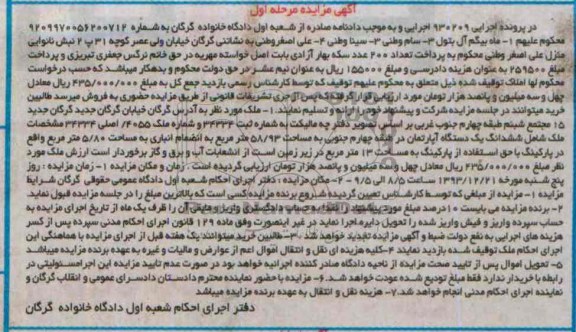 آگهی مزایده مرحله اول
در پرونده اجرایی ۹۳۰۲۰۹ اجرایی و به موجب دادنامه صادره از شعبه اول دادگاه خانواده گرگان به شماره ۹۲۰۹۹۷۰۰۵۶۲۰۰۷۱۲
محکوم علیهم ۱- ماه بیگم آل بتول ۳- سام وطنی ۳- سینا وطنی ۴- علی اصغر وطنی به نشانی گرگان خیابان ولی عصر کوچه ۳۱ پ ۲ نبش نانوایی
منزل علی اصغر وطنی محکوم به پرداخت تعداد ۲۰۰ عدد سکه بهار آزادی بابت اصل خواسته مهریه در حق خانم نرگس جعفری تبریزی و پرداخت
مبلغ ۲۵۹۵۰۰ به عنوان هزینه دادرسی و مبلغ ۱۵۵۰۰۰ ریال به عنوان نیم عشر در حق دولت محکوم و بدهکار میباشد که حسب درخواست
محکوم لها املاک توقیف شده ذیل متعلق به محکوم علیهم توقیف که توسط کارشناس رسمی بازدید جمع کل به مبلغ ۴۳۵/۰۰۰/۰۰۰ ریال معادل
چهل و سه میلیون و پانصد هزار تومان مورد ارزیابی قرار گرفته که پس از جری تشریفات قانونی از طریق مزایده حضوری به فروش میرسد طالبین
خرید میتوانند در جلسه مزایده شرکت و پیشنهاد خود را ارائه و تسلیم نمایند. ۱- ملک مورد نظر به آدرس گرگان خیابان گرگان جدید گرگان جدید
۱۵ مجتمع شبنم طبقه چهارم جنوب غربی بر اساس تصویر دفترچه مالکیت به شماره ثبت ۳۴۳۳۴ و شماره ملک ۴۰۵۵/ اصلی ۳۴۳۳۴ مشخصات
ملک شامل ششدانگ یک دستگاه آپارتمان در طبقه چهارم جنوبی به مساحت ۵۸/۹۳ متر مربع به انضمام انباری به مساحت ۵/۸۰ متر مربع واقع
در پارکینگ با حق استفاده از پارکینگ به مساحت ۱۳ متر مربع در زیر زمین است از انشعابات آب و برق و گاز برخوردار است ارزش ملک مورد
نظر مبلغ ۴۳۵/۰۰۰/۰۰۰ ریال معادل چهل و سه میلیون و پانصد هزار تومان ارزیابی گردیده است. زمان و مکان مزایده ۱- زمان مزایده: روز
پنج شنبه مورخه ۱۳۹۳/۱۲/۲۱ ساعت ۸/۵ الی ۹/۵ ۲- مکان مزایده: دفتر اجرای احکام شعبه اول دادگاه عمومی حقوقی گرگان شرایط
مزایده ۱- مزایده از مبلغی که توسط کارشناس تعیین گردیده شروع برنده مزایده کسی است که بالاترین مبلغ را در جلسه مزایده قبول نماید
۲- برنده مزایده می بایست ۱۰ درصد مبلغ مورد پیشنهاد را به حساب سپرده دادگستری واریز و مابقی آن را ظرف یک ماه از تاریخ اجرای مزایده به
حساب سپرده واریز و فیش واریز شده را تحویل دایر اجرا نماید در غیر اینصورت وفق ماده ۱۲۹ قانون اجرای احکام مدنی سپرده پس از کسر
هزینه های اجرایی به نفع دولت ضبط و آگهی مزایده تجدید خواهد شد. ۳- طالبین خرید میتوانند یک هفته قبل از اجرای مزایده با هماهنگی این
اجرای احکام ملک توقیف شده بازدید نمایند ۴- کلیه هزینه ای نقل و انتقال اموال اعم از عوارض و مالیات و غیره به عهده برنده مزایده میباشد
۵- تحویل اموال پس از تایید صحت مزایده از ناحیه دادگاه صادر کننده اجرائیه خواهد بود در صورت عدم تایید مزایده این اجرا مسئولیتی در
رابطه با خریدار ندارد فقط مبلغ تودیع شده عودت خواهد شد. ۶- مزایده با حضور نماینده محترم دادستان دادسرای عمومی و انقلاب گرگان و
نماینده اجرای احکام مدنی انجام خواهد شد. ۷- هزینه نقل و انتقال به عهده برنده مزایده میباشد
دفتر اجرای احکام شعبه اول دادگاه خانواده گرگان